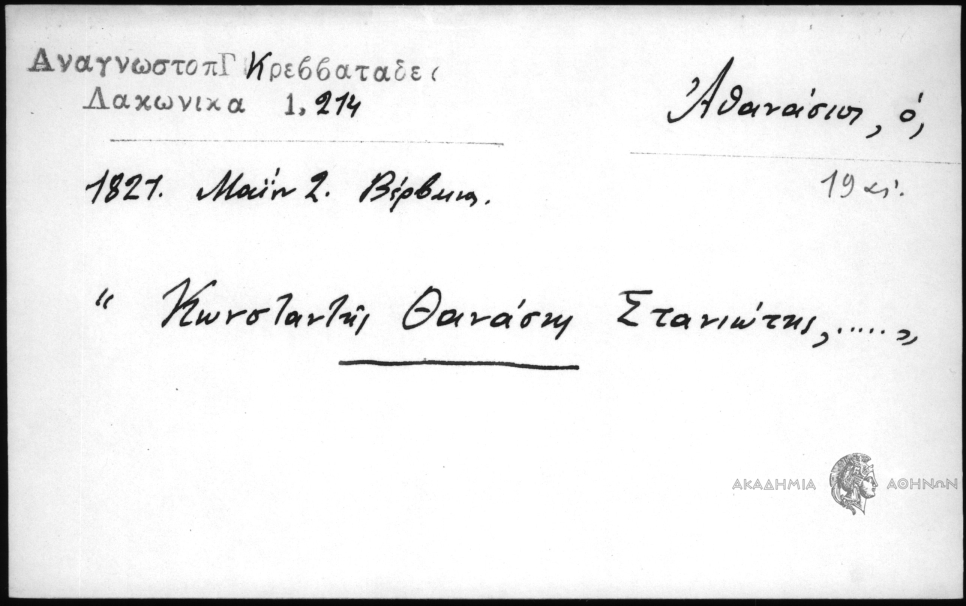 ΑναγνωστοπΓ Κρεββαταδες
Λακωνικα 1, 214
Ἀθανάσιος, ὁ,
1821. Μαΐου 2. Βέρβαινα.
19 αἰ.
“ Κωνσταντῆς Θανάσης Στανιώτης, ..... „
ΑΚΑΔΗΜΙΑ ΑΘΗΝΩΝ